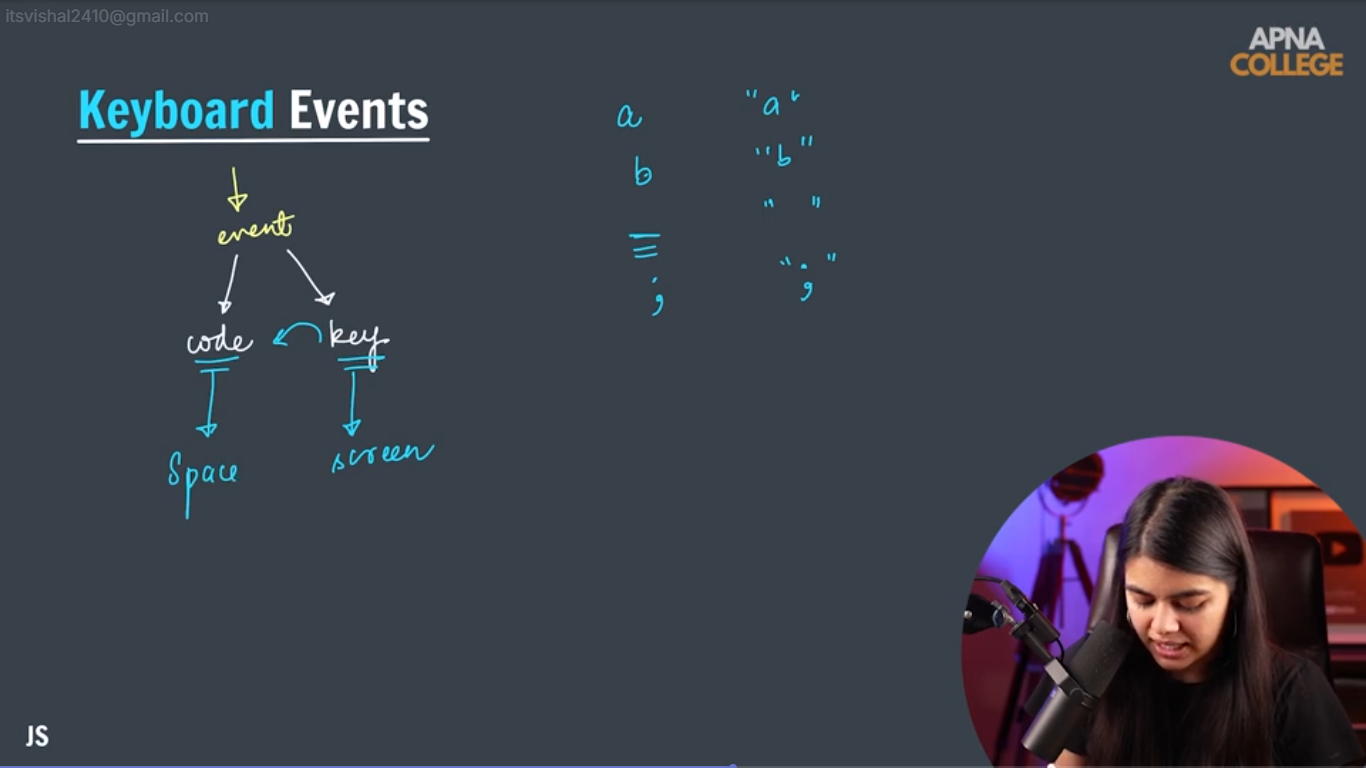 itsvishal2410@gmail.com
APNA
COLLEGE
Keyboard Events
event
code key
Space screen
a "a"
b "b"
" "
; ";"
JS